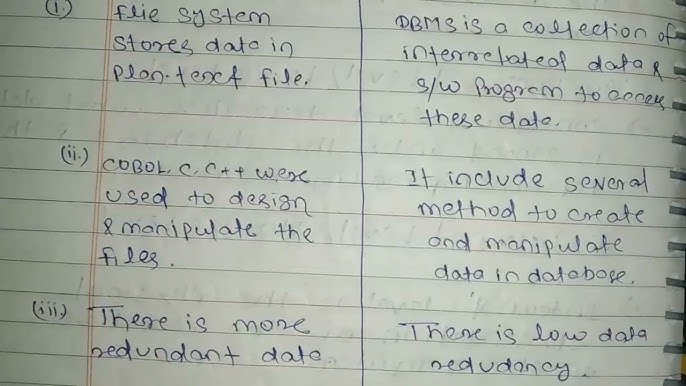 (i.) file system
stores data in
plan-text file.
DBMS is a collection of
interrelated data &
s/w program to access
these data.
(ii.) COBOL, C, C++ were
used to design
& manipulate the
files.
It include several
method to create
and manipulate
data in database.
(iii) There is more
redundant data.
There is low data
redudancy.